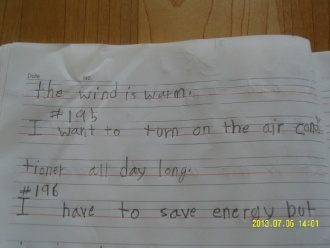 Date No.
the wind is warm.
#195
I want to turn on the air condi
tioner all day long.
#196
I have to save energy but
2013.07.06 14:01